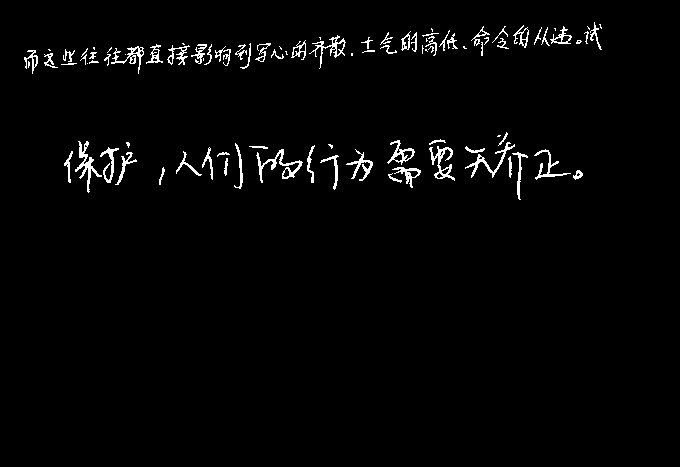 而这些往往都直接影响到军心的齐散、士气的高低、命令的从违。试
保护,人们的行为需要矫正。